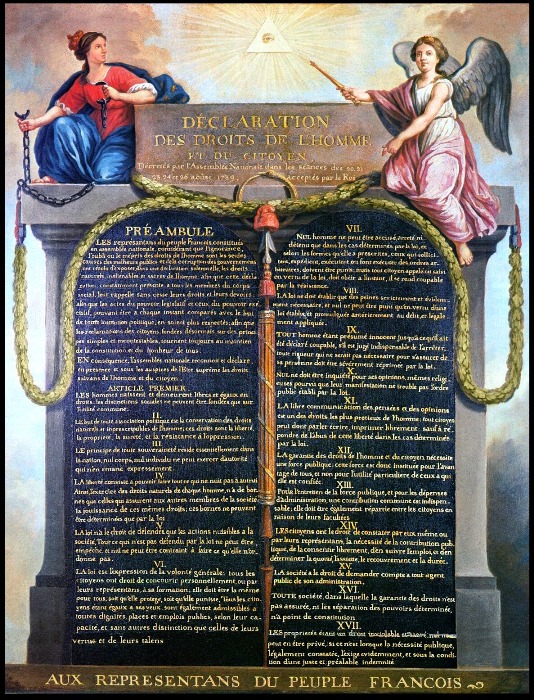 DÉCLARATION
DES DROITS DE L'HOMME
ET DU CITOYEN
Décrétés par l'Assemblée Nationale dans les séances des 20, 21
23, 24 et 26 août 1789, acceptés par le Roi
PRÉAMBULE
LES représentans du peuple François, constitués
en assemblée nationale, considérant que l'ignorance,
l'oubli ou le mépris des droits de l'homme sont les seules
causes des malheurs publics et de la corruption des gouvernemens
ont résolu d'exposer dans une déclaration solemnelle, les droits
naturels, inaliénables et sacrés de l'homme; afin que cette décla
ration, constamment présente a tous les membres du corps
social, leur rappelle sans cesse leurs droits et leurs devoirs;
afin que les actes du pouvoir législatif et ceux du pouvoir exé
cutif, pouvant être a chaque instant comparés avec le but
de toute institution politique, en soient plus respectés; afin que
les réclamations des citoyens, fondées désormais sur des principes
simples et incontestables, tournent toujours au maintien
de la constitution et du bonheur de tous.
EN conséquence, l'assemblée nationale reconnoit et déclare
en presence et sous les auspices de l'Etre suprême les droits
suivans de l'homme et du citoyen.
ARTICLE PREMIER
LES hommes naissent et demeurent libres et égaux en
droits. les distinctions sociales ne peuvent être fondées que sur
l'utilité commune.
II.
LE but de toute association politique est la conservation des droits
naturels et imprescriptibles de l'homme; ces droits sont la liberté,
la propriété, la sureté, et la résistance à l'oppression.
III.
LE principe de toute souveraineté réside essentiellement dans
la nation, nul corps, nul individu ne peut exercer d'autorité
qui n'en émane expressement.
IV.
LA liberté consiste a pouvoir faire tout ce qui ne nuit pas à autrui
Ainsi, l'exercice des droits naturels de chaque homme, n'a de bor
nes que celles qui assurent aux autres membres de la société
la jouissance de ces mêmes droits; ces bornes ne peuvent
être déterminées que par la loi
V.
LA loi n'a le droit de défendre que les actions nuisibles à la
société. Tout ce qui n'est pas défendu par la loi ne peut être
empêché, et nul ne peut être contraint à faire ce qu'elle n'or
donne pas.
VI.
LA loi est l'expression de la volonté générale; tous les
citoyens ont droit de concourir personnellement, ou par
leurs représentans, à sa formation; elle doit être la même
pour tous, soit qu'elle protege, soit qu'elle punisse. Tous les cito
yens étant égaux à ses yeux, sont également admissibles à
toutes dignités, places et emplois publics, selon leur ca
pacité, et sans autres distinction que celles de leurs
vertus et de leurs talens
VII.
NUL homme ne peut être accusé, arreté ni
détenu que dans les cas déterminés par la loi, et
selon les formes qu'elle a prescrites, ceux qui sollicitent,
expédient, exécutent ou font exécuter des ordres ar
bitraires, doivent être punis; mais tout citoyen appelé ou saisi
en vertu de la loi, doit obéir a l'instant, il se rend coupable
par la résistance.
VIII.
LA loi ne doit établir que des peines strictement et évidem
ment nécessaire, et nul ne peut être puni qu'en vertu d'une
loi établie et promulguée antérieurement au délit, et légale
ment appliquée.
IX.
TOUT homme étant présumé innocent jusqu'a ce qu'il ait
été déclaré coupable, s'il est jugé indispensable de l'arrêter,
toute rigueur qui ne serait pas nécessaire pour s'assurer de
sa personne doit être sévérement réprimée par la loi.
X.
NUL ne doit être inquiété pour ses opinions, mêmes religi
euses pourvu que leur manifestation ne trouble pas l'ordre
public établi par la loi.
XI.
LA libre communication des pensées et des opinions
est un des droits les plus precieux de l'homme; tout citoyen
peut donc parler écrire, imprimer librement: sauf à ré
pondre de l'abus de cette liberté dans les cas déterminés
par la loi.
XII.
LA garantie des droits de l'homme et du citoyen nécessite
une force publique; cette force est donc instituée pour l'avan
tage de tous, et non pour l'utilité particuliere de ceux a qui
elle est confiée.
XIII.
Pour l'entretien de la force publique, et pour les dépenses
d'administration, une contribution commune est indispen
sable; elle doit être également répartie entre les citoyens en
raison de leurs facultées
XIV.
LES citoyens ont le droit de constater par eux même ou
par leurs représentans, la nécessité de la contribution pub
lique, de la consentir librement, d'en suivre l'emploi, et d'en
déterminer la quotité, l'assiette, le recouvrement et la durée.
XV.
LA société a le droit de demander compte a tout agent
public de son administration.
XVI.
TOUTE société, dans laquelle la garantie des droits n'est
pas assurée, ni les séparation des pouvoirs déterminée,
n'a point de constitution
XVII.
LES propriétés étant un droit inviolable et sacré, nul ne
peut en être privé, si ce n'est lorsque la nécessité publique,
légalement constatée, l'exige evidemment, et sous la condi
tion d'une juste et préalable indemnité
AUX REPRESENTANS DU PEUPLE FRANCOIS